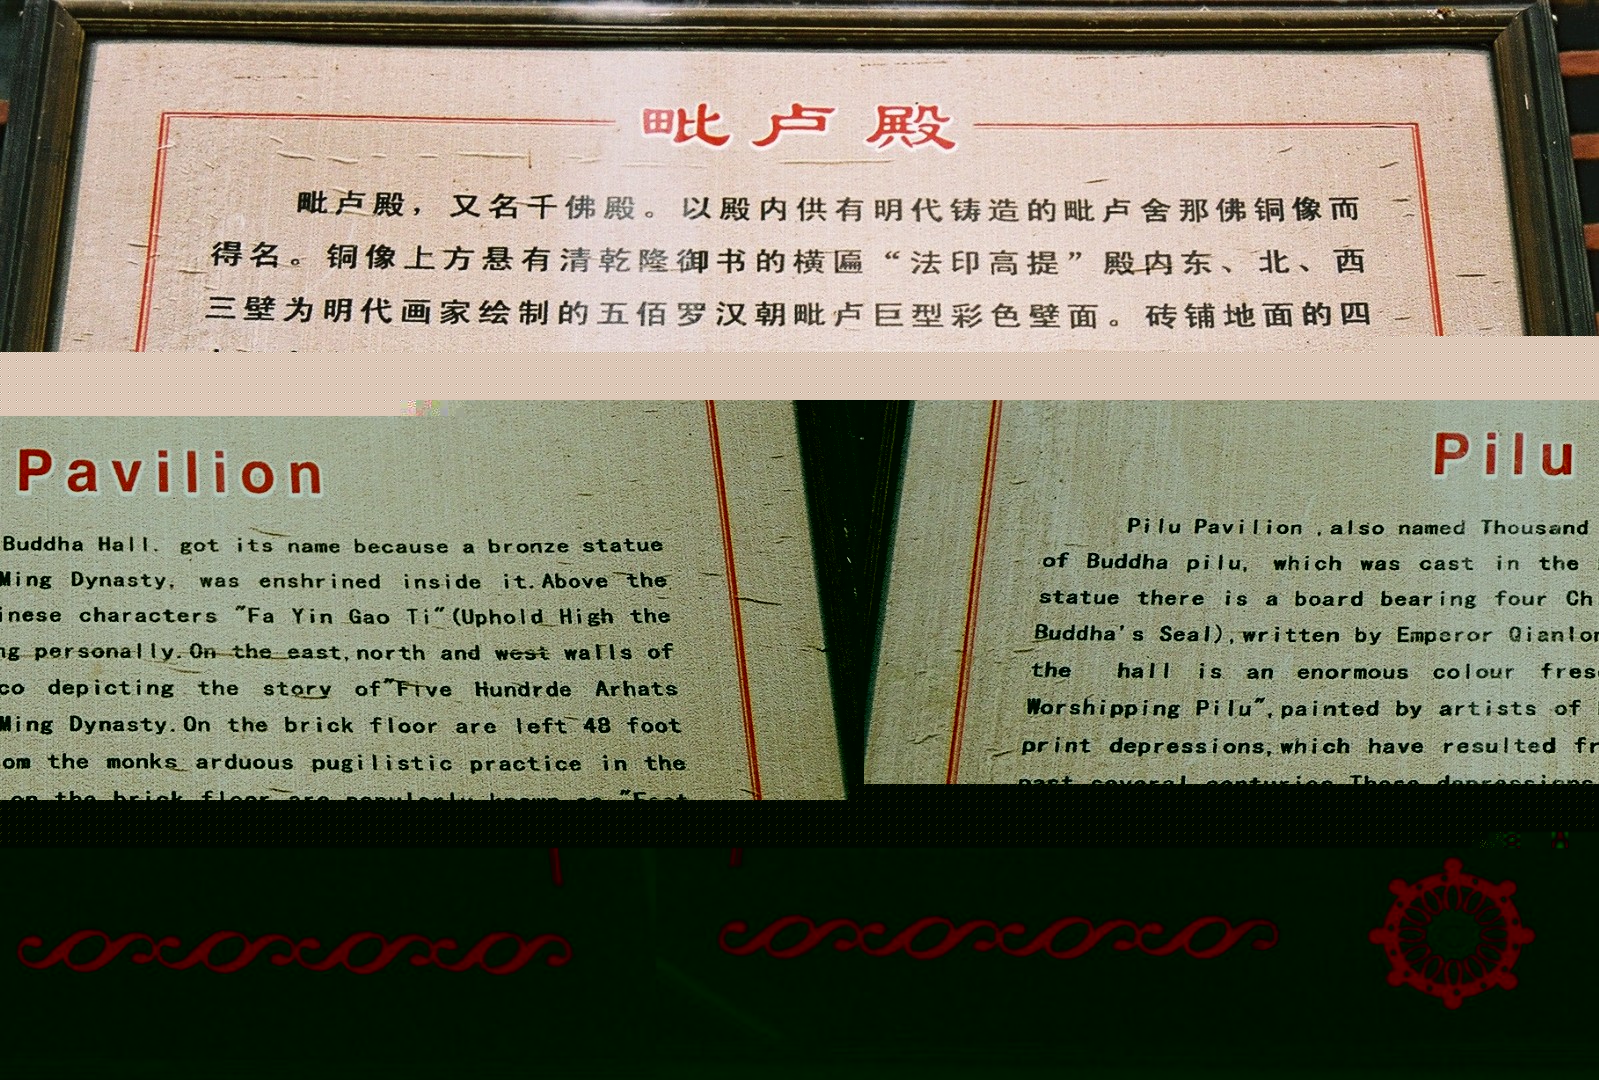 毗卢殿
毗卢殿，又名千佛殿。以殿内供有明代铸造的毗卢舍那佛铜像而
得名。铜像上方悬有清乾隆御书的横匾“法印高提”殿内东、北、西
三壁为明代画家绘制的五佰罗汉朝毗卢巨型彩色壁面。砖铺地面的四
Pavilion
Buddha Hall. got its name because a bronze statue
Ming Dynasty, was enshrined inside it.Above the
inese characters "Fa Yin Gao Ti"(Uphold High the
ng personally.On the east,north and west walls of
co depicting the story of"Five Hundrde Arhats
Ming Dynasty.On the brick floor are left 48 foot
om the monks arduous pugilistic practice in the
Pilu
Pilu Pavilion ,also named Thousand
of Buddha pilu, which was cast in the
statue there is a board bearing four Ch
Buddha's Seal),written by Emperor Qianlon
the hall is an enormous colour fres
Worshipping Pilu",painted by artists of
print depressions,which have resulted fr